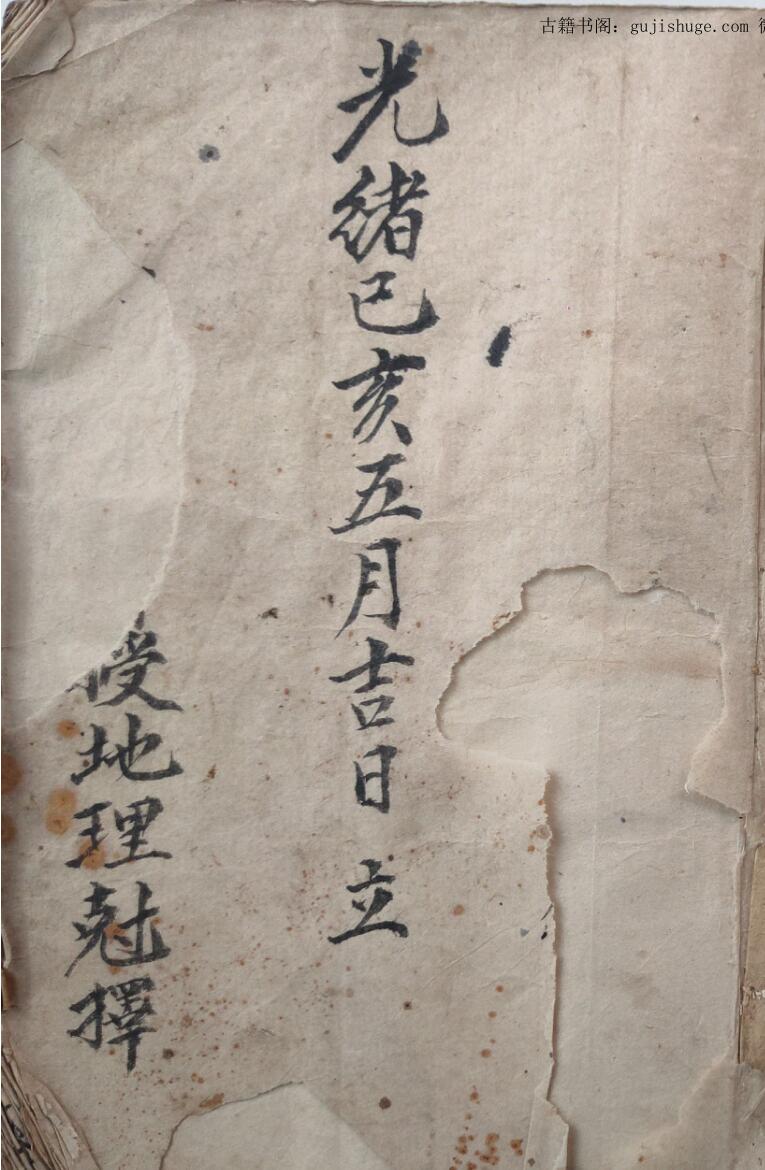 古籍书阁：gujishuge.com 微
光緒己亥五月吉日 立
授地理尅擇